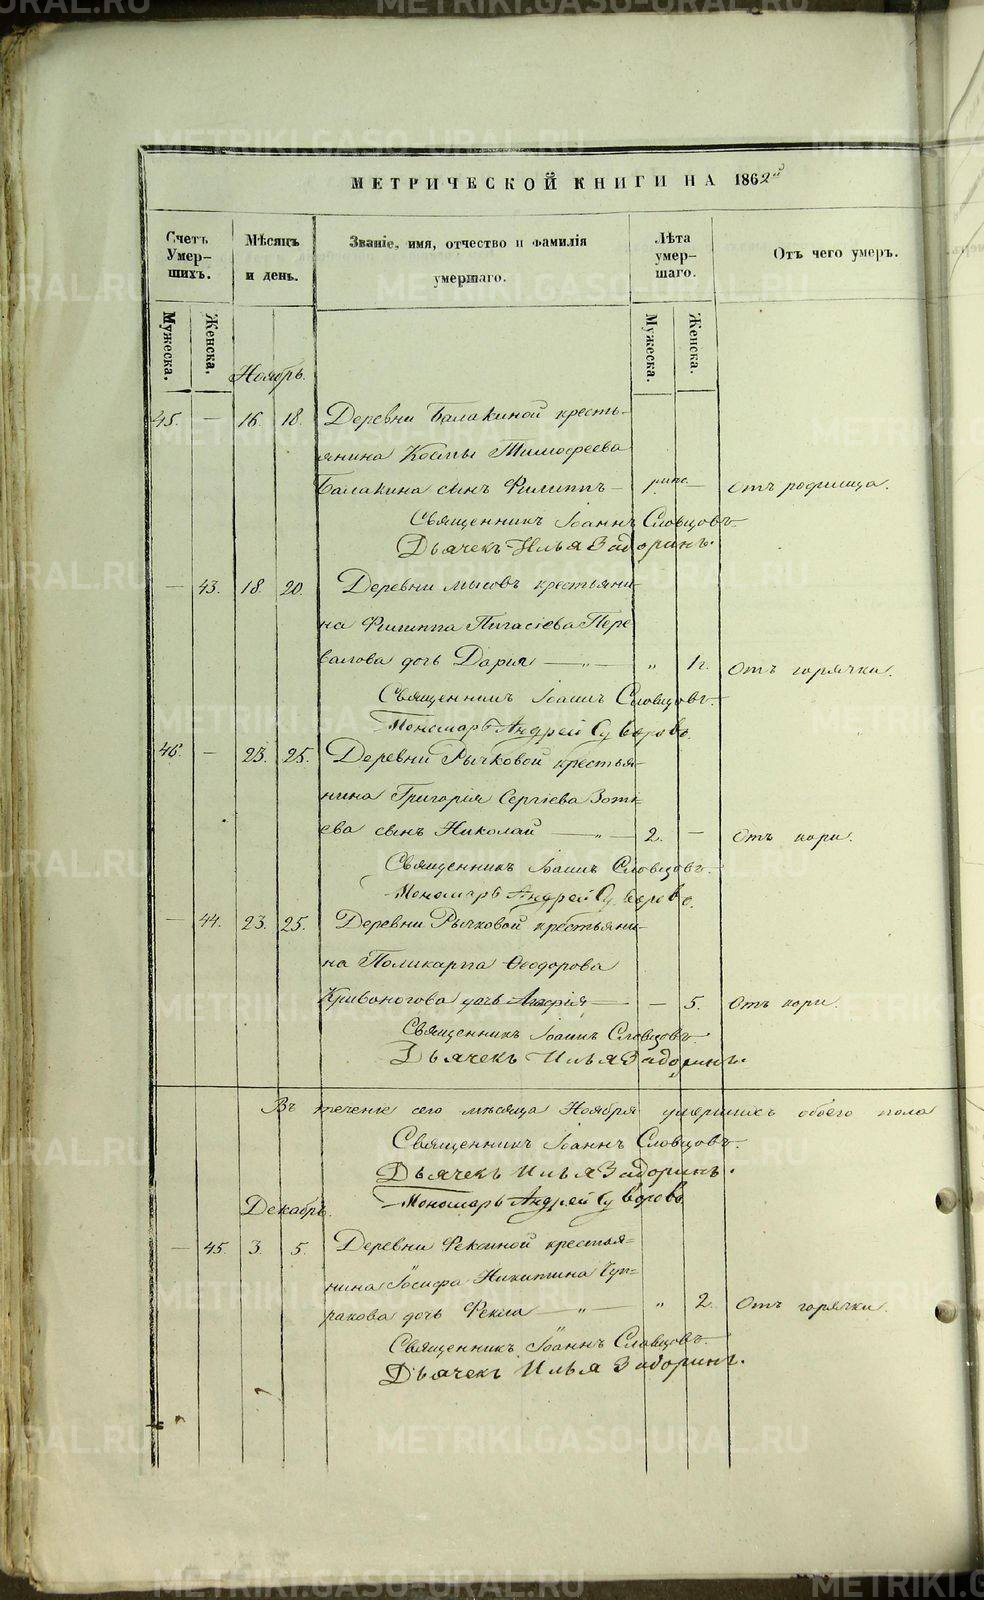 МЕТРИЧЕСКОЙ КНИГИ НА 1862й
Счетъ Умер-шихъ.
Мѣсяцъ и день.
Званіе, имя, отчество и фамилія умершаго.
Лѣта умер-шаго.
Отъ чего умеръ.
Мужеска. Женска. Мужеска. Женска.
Ноябрь.
45. — 16. 18. Деревни Балакиной кресть-
янина Космы Тимофеева
Балакина сынъ Филиппъ — — Отъ родимца.
Священникъ Іоаннъ Словцовъ
Дьячекъ Илья Задоринъ.
— 43. 18. 20. Деревни Мысовъ крестьяни-
на Филиппа Пигасіева Пере
валова дочь Дарья — „ — „ 1 г. Отъ горячки.
Священникъ Іоаннъ Словцовъ.
Пономарь Андрей Суворовъ.
46. — 23. 25. Деревни Рычковой крестья-
нина Григорія Сергіева Зоть-
ева сынъ Николай — „ — 2. — Отъ кори.
Священникъ Іоаннъ Словцовъ.
Пономарь Андрей Суворовъ.
— 44. 23. 25. Деревни Рычковой крестьяни-
на Поликарпа Ѳеодорова
Кривоногова дочь — — 5. Отъ кори.
Священникъ Іоаннъ Словцовъ
Дьячекъ Илья Задоринъ.
Въ теченіе сего мѣсяца Ноября умершихъ обоего пола
Священникъ Іоаннъ Словцовъ.
Дьячекъ Илья Задоринъ.
Пономарь Андрей Суворовъ
Декабрь.
— 45. 3. 5. Деревни крестья-
нина Іосифа Никитина Чуп-
ракова дочь Фекла — „ — „ 2. Отъ горячки.
Священникъ Іоаннъ Словцовъ.
Дьячекъ Илья Задоринъ.
METRIKI.GASO-URAL.RU